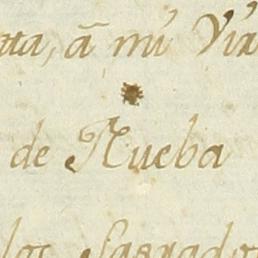 tta, ã mi Vir
de Nueba
los Sagrados